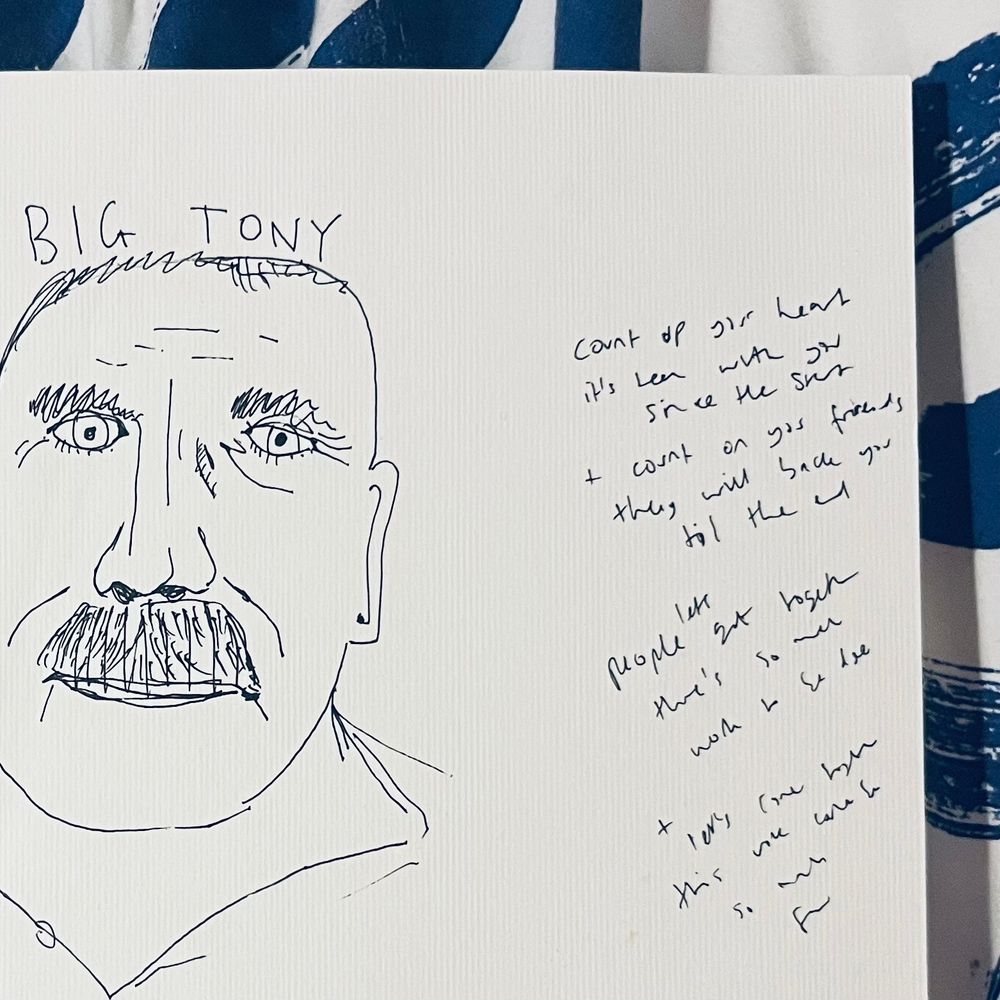 BIG TONY
count up your heart
it's been with you
since the start
+ count on your friends
they will back you
til the end
lets
people get together
there's so much
work to be done
+ let's come together
this work can be
so much
fun